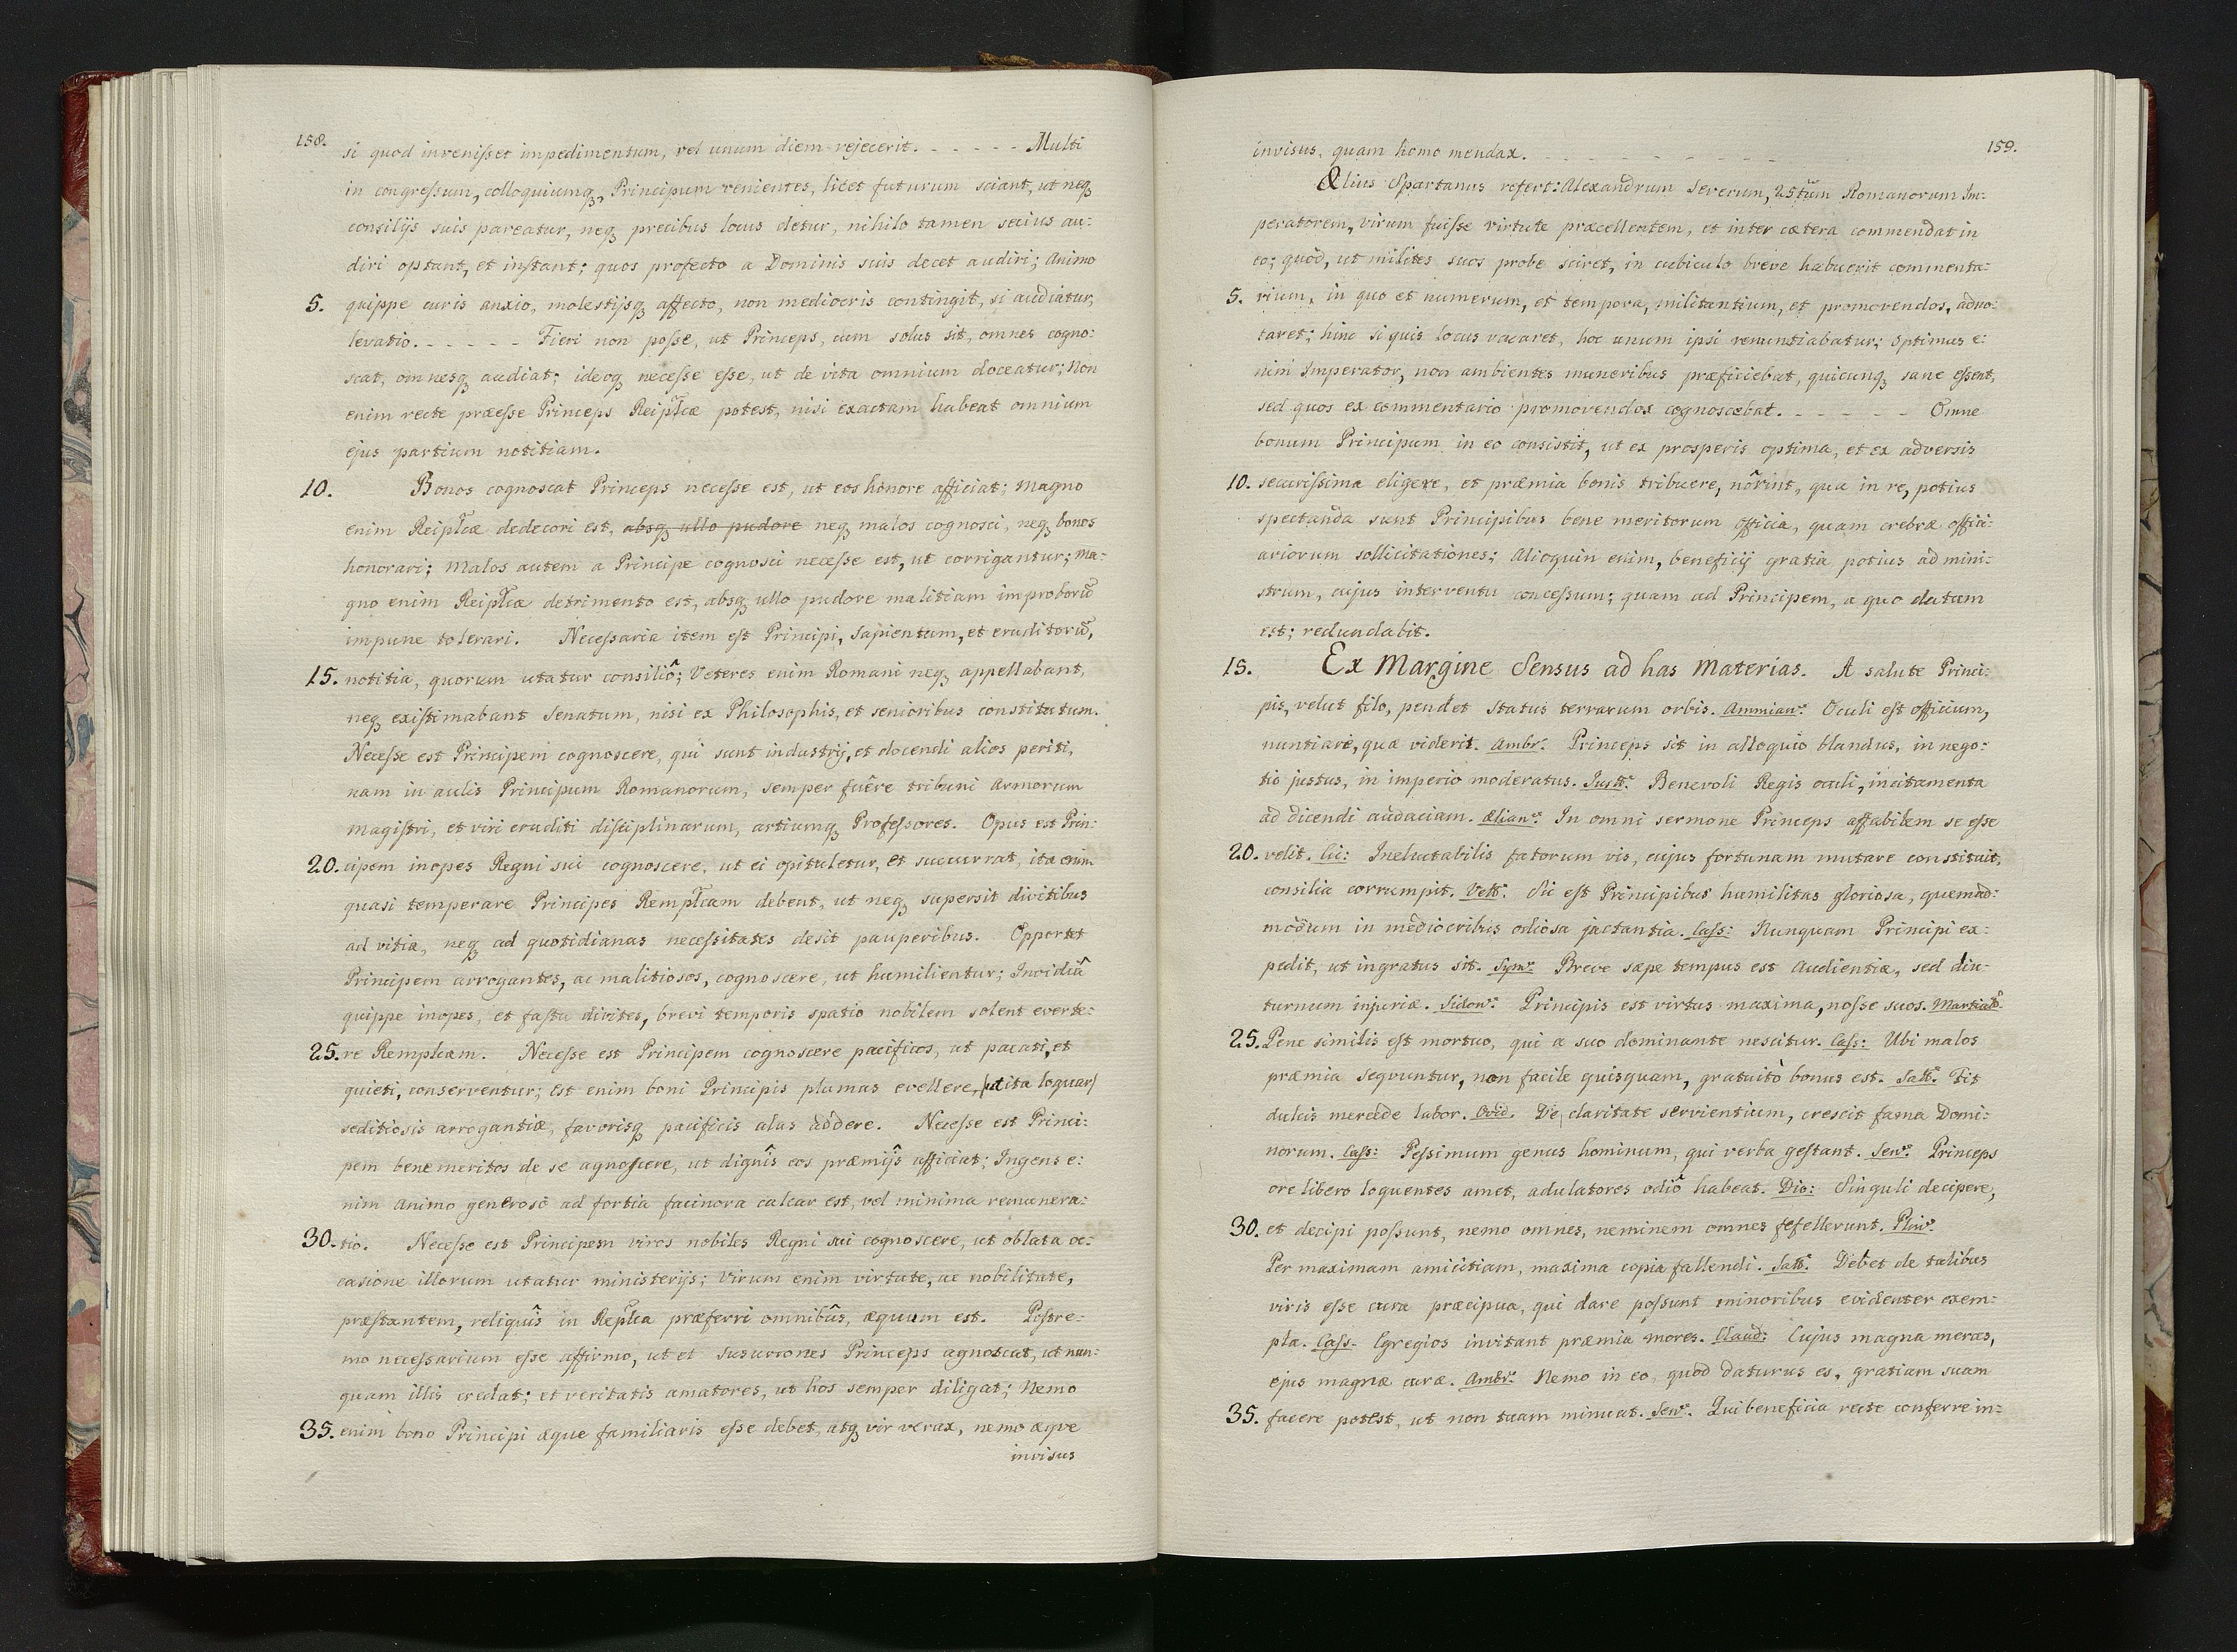 158.
si quod invenisset impedimentum, vel unum diem rejecerit. - - - - - - Multi
in congressum, colloquiumq, Principum venientes, licet futurum sciant, ut neq
consilijs suis pareatur, neq precibus locus detur, nihilo tamen secius au:
diri optant, et instant; quos profecto a Dominis suis decet audiri; Animo
5. quippe curis anxio, molestijsq affecto, non mediocris contingit, si audiatur,
levatio. - - - - - - Fieri non posse, ut Princeps, cum solus sit, omnes cogno:
scat, omnesq audiat; ideoq necesse esse, ut de vita omnium doceatur; Non
enim recte præesse Princeps Reiplcæ potest, nisi exactam habeat omnium
ejus partium notitiam.
10. Bonos cognoscat Princeps necesse est, ut eos honore afficiat; Magno
enim Reiplcæ dedecori est, absq ullo pudore neq malos cognosci, neq bonos
honorari; Malos autem a Principe cognosci necesse est, ut corrigantur; Ma-
gno enim Reiplcæ detrimento est, absq ullo pudore malitiam improborũ
impune tolerari. Necessaria item est Principi, Sapientum, et eruditorũ,
15. notitia, quorum utatur consiliô; Veteres enim Romani neq appellabant,
neq existimabant Senatum, nisi ex Philosophis, et senioribus constitutum.
Necesse est Principem cognoscere, qui sunt industrij, et docendi alios periti,
nam in aulis Principum Romanorum, semper fuêre tribuni Armorum
magistri, et viri eruditi disciplinarum, artiumq Professores. Opus est Prin:
20. cipem inopes Regni sui cognoscere, ut ei opituletur, et succurrat, ita enim
quasi temperare Principes Remplcam debent, ut neq supersit divitibus
ad vitia, neq ad quotidianas necessitates desit pauperibus. Opportet
Principem arrogantes, ac malitiosos, cognoscere, ut humilientur; Invidiâ
quippe inopes, et fastu divites, brevi temporis spatio nobilem solent everte:
25. re Remplcam. Necesse est Principem cognoscere pacificos, ut pacati, et
quieti, conserventur; Est enim boni Principis plumas evellere, (ut ita loquar)
seditiosis arrogantiæ, favorisq pacificis alas addere. Necesse est Princi:
pem benemeritos de se agnoscere, ut dignîs eos præmijs afficiat; Ingens e:
nim Animo generosô ad fortia facinora calcar est, vel minima remunera:
30. tio. Necesse est Principem viros nobiles Regni sui cognoscere, ut oblata oc:
casione illorum utatur ministerijs; Virum enim virtute, ac nobilitate,
præstantem, reliquîs in Replca præferri omnibûs, æquum est. Postre:
mo necessarium esse affirmo, ut et susurrones Princeps agnoscat, ut nun:
quam illis credat; et veritatis amatores, ut hos semper diligat; Nemo
35. enim bono Principi æque familiaris esse debet, atq vir verax, nemo æqve
invisus
159.
invisus, quam homo mendax. - - - - - - - - - - -
Ælius Spartanus refert: Alexandrum Severum, 25tum Romanorum Im:
peratorem, virum fuisse virtute præcellentem, et inter cætera commendat in
eo; quod, ut milites suos probe sciret, in cubiculo breve habuerit commenta:
5. rium, in quo et numerum, et tempora, militantium, et promovendos, adno:
taret; hinc si quis locus vacaret, hoc unum ipsi renuntiabatur; Optimus e:
nim Imperator, non ambientes muneribus præficiebat, quicunq sane essent,
sed quos ex commentario promovendos cognoscebat. - - - - - - Omne
bonum Principum in eo consistit, ut ex prosperis optima, et ex adversis
10. securissima eligere, et præmia bonis tribuere, nôrint, qua in re, potius
spectanda sunt Principibus bene meritorum officia, quam crebræ offici:
ariorum sollicitationes; Alioquin enim, beneficij gratia potius ad mini:
strum, cujus interventu concessum; quam ad Principem, a quo datum
est; redundabit.
15. Ex Margine Sensus ad has Materias. A salute Princi:
pis, velut filo, pendet status terrarum orbis. Ammian9. Oculi est officium,
nuntiare, quæ viderit. Ambr. Princeps sit in alloquio blandus, in nego:
tio justus, in imperio moderatus. Justi. Benevoli Regis oculi, incitamenta
ad dicendi audaciam. Ælian9. In omni sermone Princeps affabilem se esse
20. velit. Cic: Ineluctabilis fatorum vis, cujus fortunam mutare constituit,
consilia corrumpit. Vell. Sic est Principibus humilitas gloriosa, quemad:
modum in mediocribus odiosa jactantia. Cass: Nunquam Principi ex:
pedit, ut ingratus sit. Sym. Breve sæpe tempus est Audientiæ, sed diu:
turnum injuriæ. Sidon. Principis est virtus maxima, nosse suos. Martial.
25. Pene similis est mortuo, qui a suo dominante nescitur. Cass: Ubi malos
præmia seqvuntur, non facile quisquam, gratuitò bonus est. Sall. Fit
dulcis mercede labor. Ovid. De claritate servientium, crescit fama Domi:
norum. Cass: Pessimum genus hominum, qui verba gestant. Sen. Princeps
ore libero loquentes amet, adulatores odiô habeat. Dio: Singuli decipere,
30. et decipi possunt, nemo omnes, neminem omnes fefellerunt. Plin.
Per maximam amicitiam, maxima copia fallendi. Sall. Debet de talibus
viris esse cura præcipua, qui dare possunt minoribus evidenter exem:
pla. Cass. Egregios invitant præmia mores. Claud: Cujus magna merces,
ejus magna cura. Ambr. Nemo in eo, quod daturus es, gratiam suam
35. facere potest, ut non tuam minuat. Sen. Qui beneficia recte conferre in: